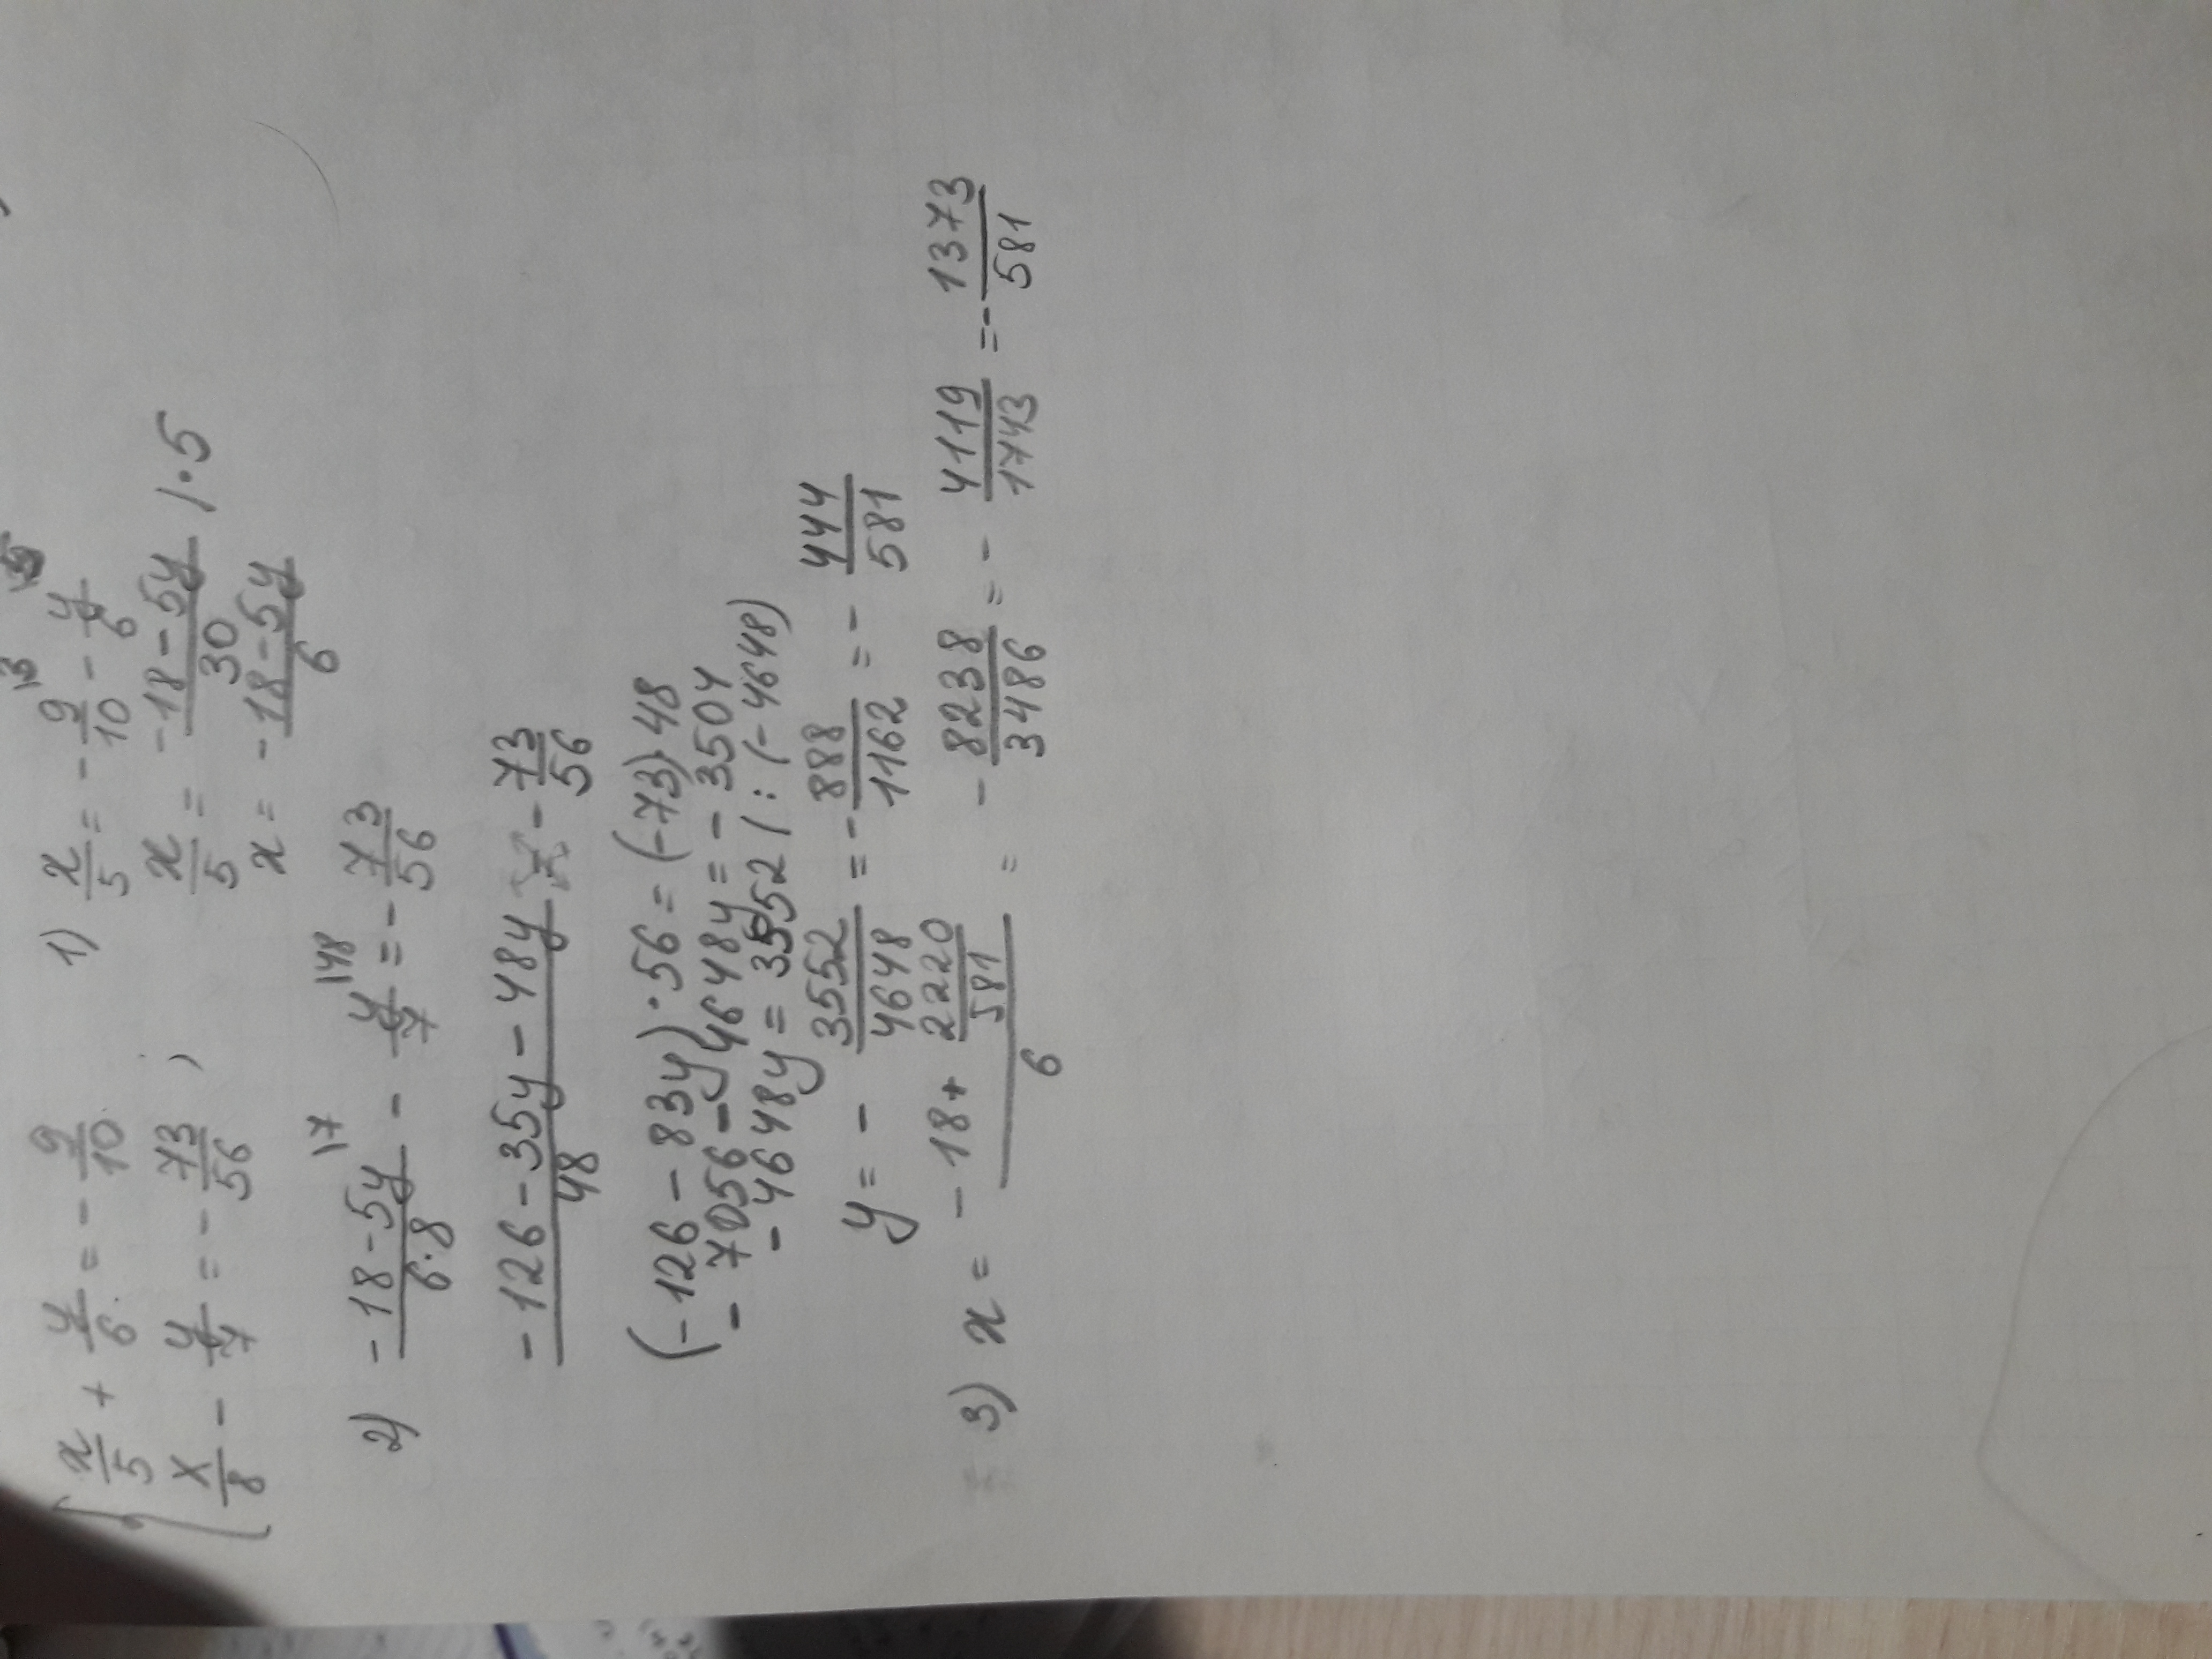 { x/5 + y/6 = - 9/10
x/8 - y/7 = - 73/56 ,
1) x/5 = - 9/10 \3 - y/6
x/5 = - 18-5y/30 / · 5
x = - 18-5y/6
2) - 18-5y/6·8 \7 - y/7 \48 = - 73/56
- 126 - 35y - 48y/48 = - 73/56
(- 126 - 83y) · 56 = (-73) · 48
- 7056 - 4648y = - 3504
- 4648y = 3552 / : (- 4648)
y = - 3552/4648 = - 888/1162 = - 444/581
3) x = - 18 + 2220/581 / 6 = - 8238/3486 = - 4119/1743 = - 1373/581